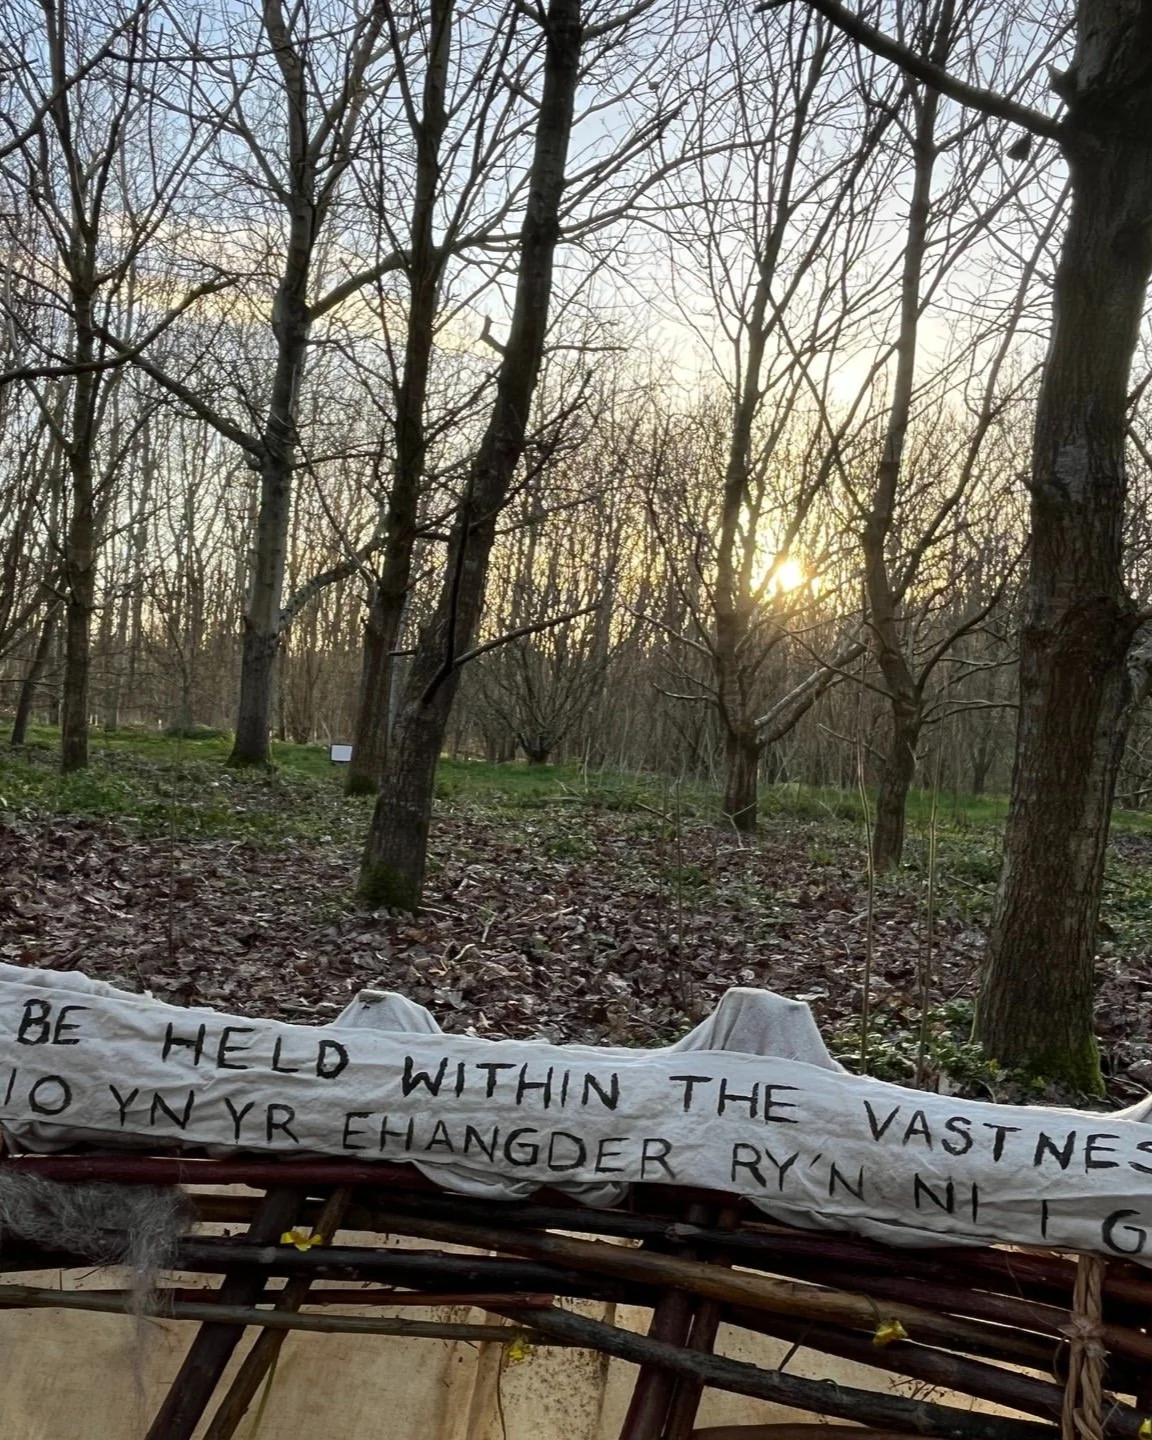 BE HELD WITHIN THE VASTNES
IO YN YR EHANGDER RY'N NI I G